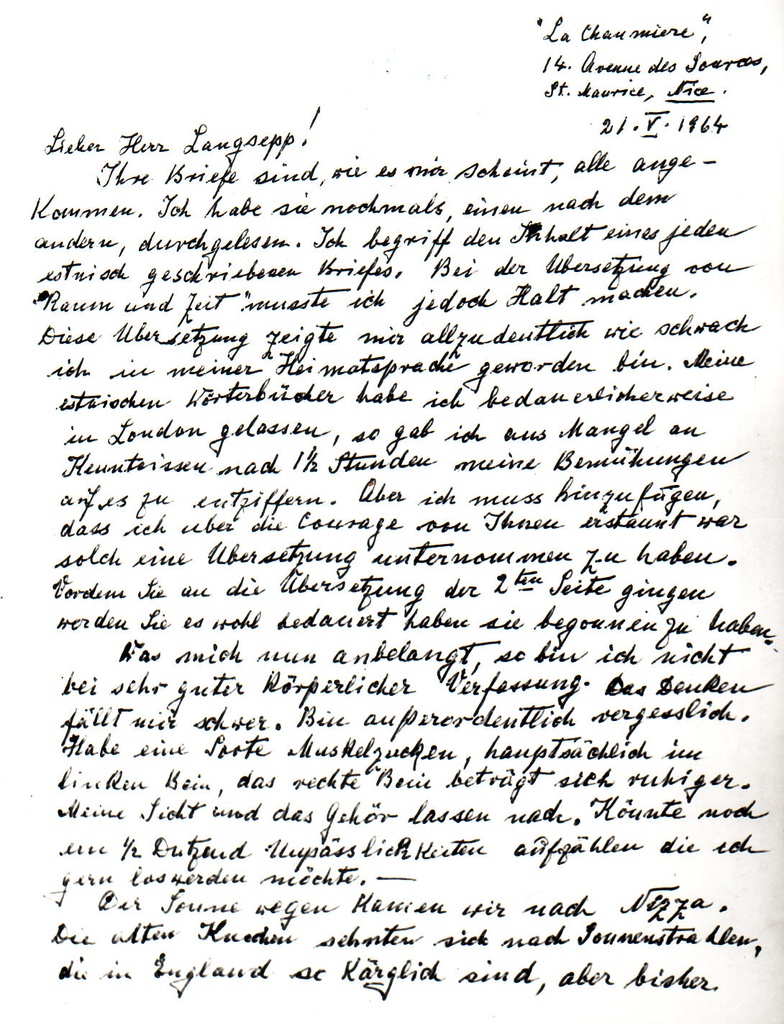 "La Chaumiere",
14. Avenue des Sources,
St. Maurice, Nice.
21. V. 1964
Lieber Herr Langsepp!
Ihre Briefe sind, wie es mir scheint, alle ange-
kommen. Ich habe sie nochmals, einen nach dem
andern, durchgelesen. Ich begriff den Inhalt eines jeden
estnisch geschriebenen Briefes. Bei der Übersetzung von
"Raum und Zeit" musste ich jedoch Halt machen.
Diese Übersetzung zeigte mir allzu deutlich wie schwach
ich in meiner "Heimatsprache" geworden bin. Meine
estnischen Wörterbücher habe ich bedauerlicherweise
in London gelassen, so gab ich aus Mangel an
Kenntnissen nach 1½ Stunden meine Bemühungen
auf es zu entziffern. Aber ich muss hinzufügen,
dass ich über die Courage von Ihnen erstaunt war
solch eine Übersetzung unternommen zu haben.
Vordem Sie an die Übersetzung der 2ten Seite gingen
werden Sie es wohl bedauert haben sie begonnen zu haben.
Was mich nun anbelangt, so bin ich nicht
bei sehr guter körperlicher Verfassung. Das Denken
fällt mir schwer. Bin außerordentlich vergesslich.
Habe eine Sorte Muskelzucken, hauptsächlich im
linken Bein, das rechte Bein beträgt sich ruhiger.
Meine Sicht und das Gehör lassen nach. Könnte noch
ein ½ Dutzend Unpässlichkeiten aufzählen die ich
gern loswerden möchte. —
Der Sonne wegen kamen wir nach Nizza.
Die alten Knochen sehnten sich nach Sonnenstrahlen,
die in England so kärglich sind, aber bisher